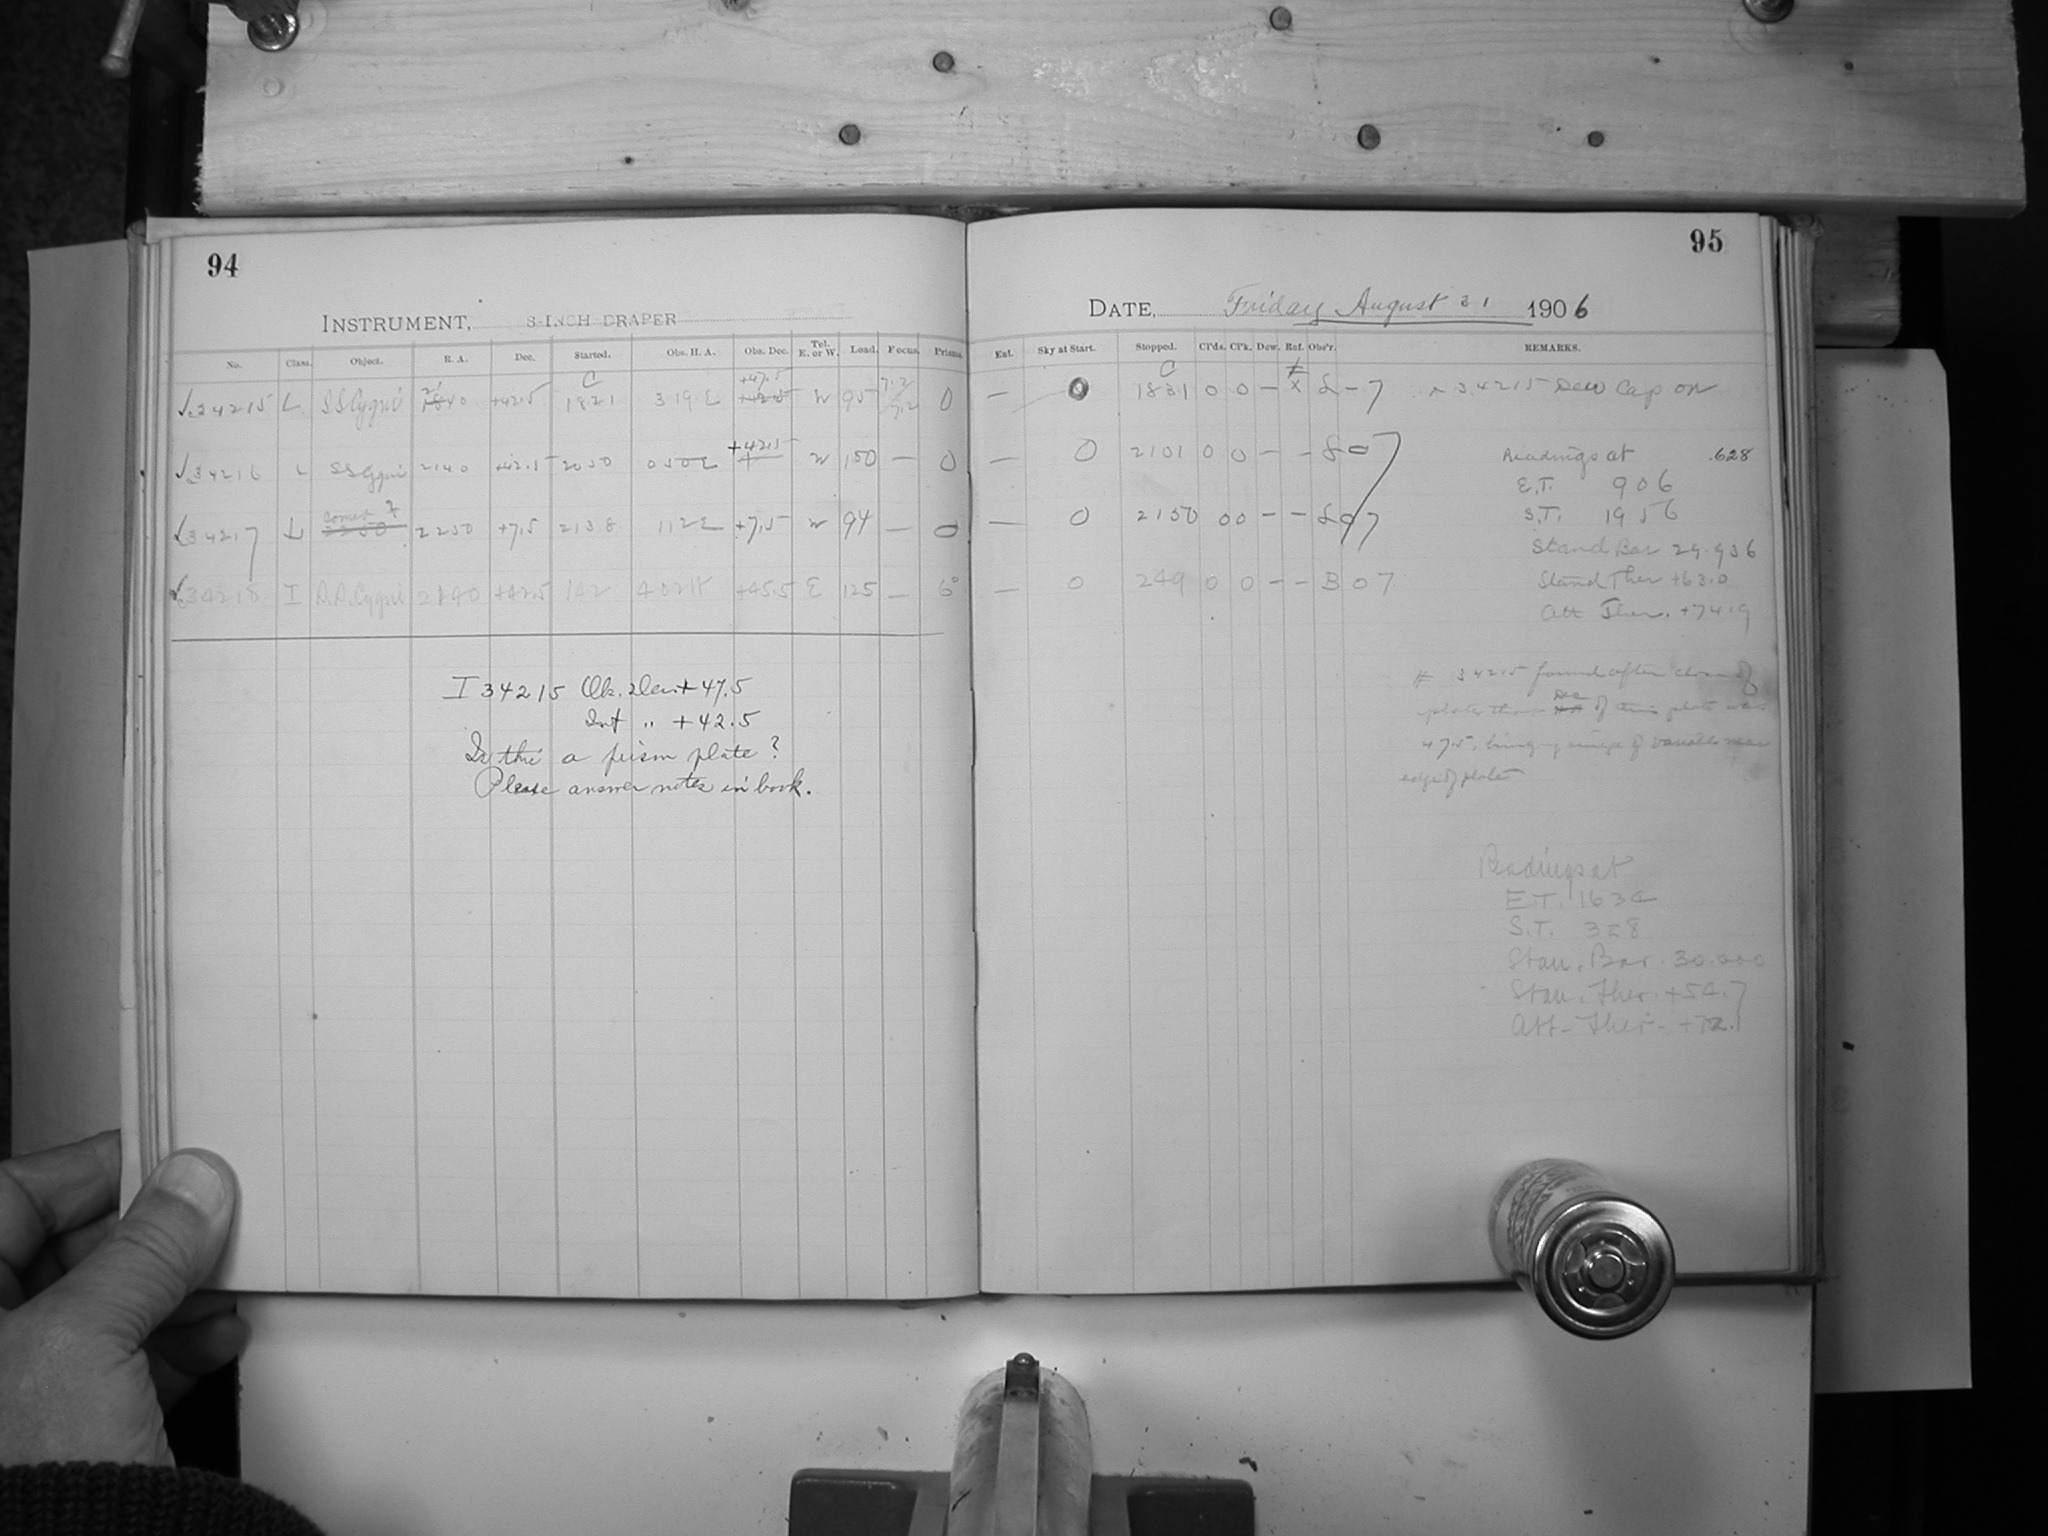 94
INSTRUMENT, 8-INCH DRAPER
No. Class. Object. R. A. Dec. Started. Obs. H. A. Obs. Dec. Tel. E. or W. Load. Focus. Prisms.
34215 L SS Cygni 2140 +42.5 C 1821 319 E +47.5 +42.5 W 95 7.2 7.2 0
34216 L SS Cygni 2140 +42.5 2050 050 E +42.5 W 150 — 0
34217 L Comet 2250 2250 +7.5 2138 112 E +7.5 W 94 — 0
34218 I 2140 +42.5 142 402 W +45.5 E 125 — 6°
I 34215 Ob. Dec +47.5
Int " +42.5
Is this a prism plate?
Please answer notes in book.
95
DATE, Friday August 31 1906
Ent. Sky at Start. Stopped. Cl'ds. Cl'k. Dew. Ref. Obs'r. REMARKS.
— 0 C 1831 0 0 — x L-7 34215 Dew Cap on
— 0 2101 0 0 — — L07
— 0 2150 0 0 — — L07
— 0 249 0 0 — — B 07
Readings at .628
E.T. 906
S.T. 1956
Stand Bar 29.936
Stand Ther +63.0
Att Ther. +74.9
# 34215 found after close of
plate Dec of this plate was
47.5, bringing image of variable near
edge of plate
Readings at
E.T. 1634
S.T. 328
Stan. Bar. 30.000
Stan. Ther. +54.7
Att- Ther- +72.1